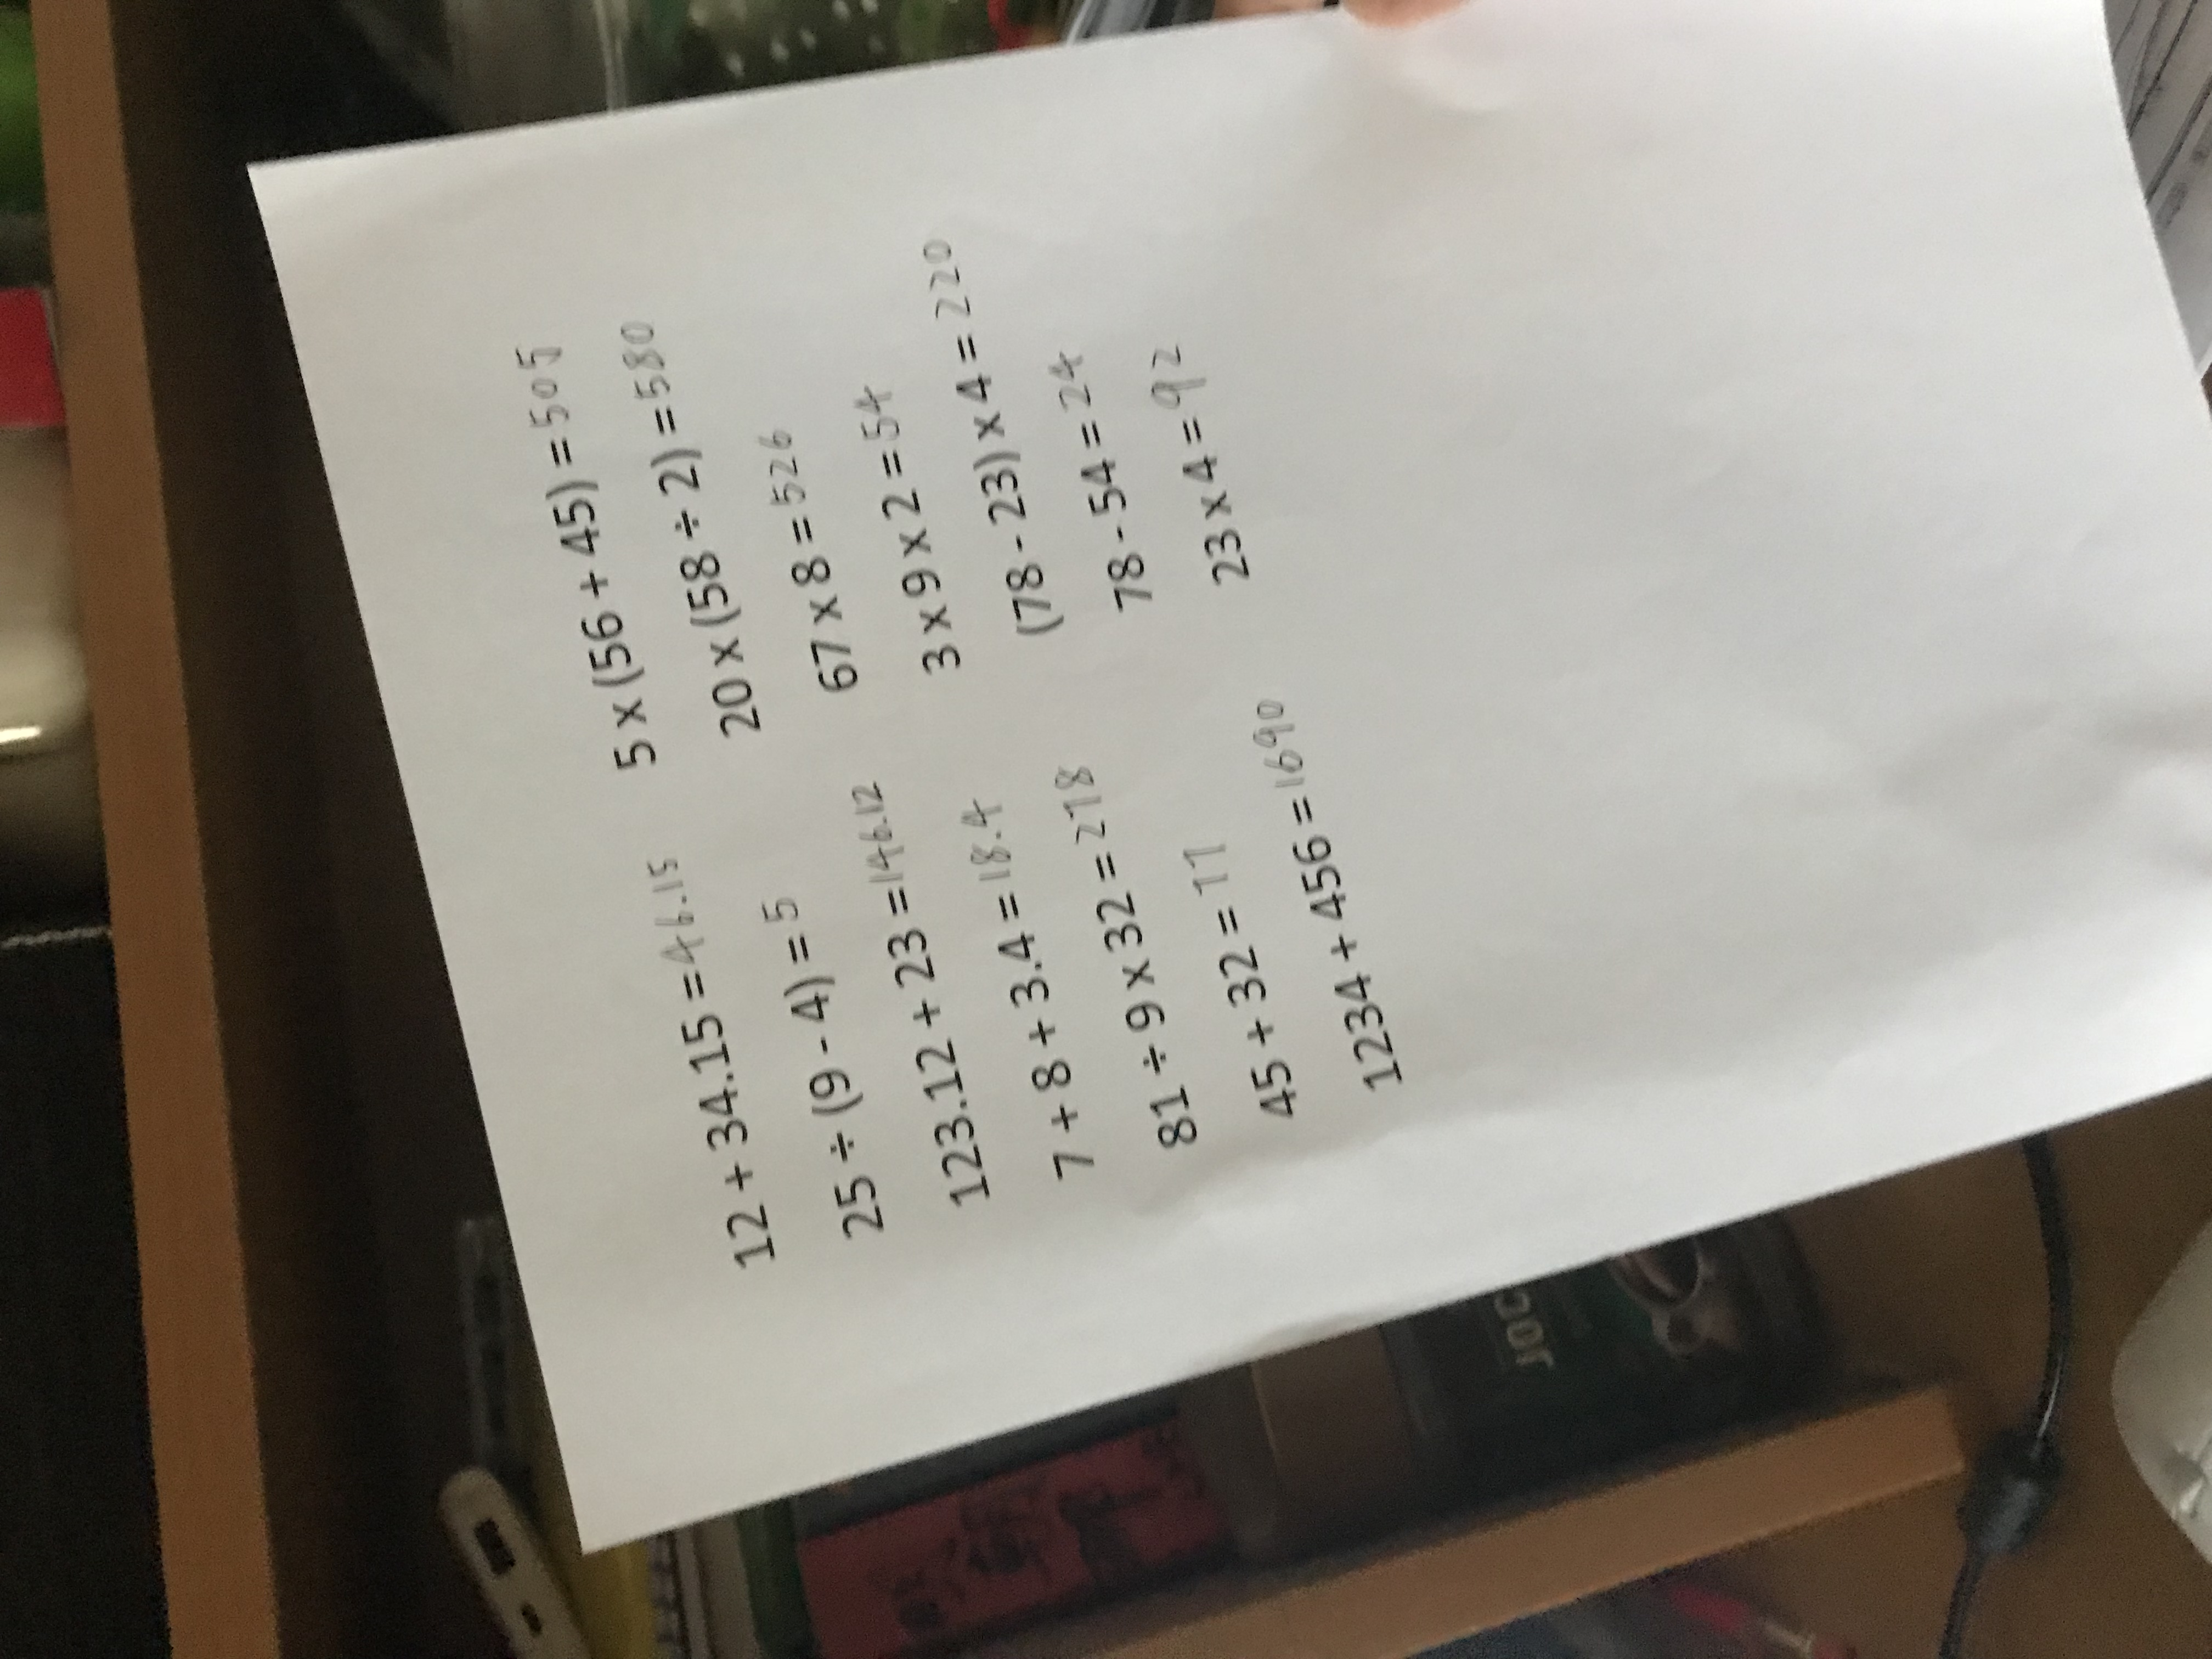 12 + 34.15 = 46.15
25 ÷ (9 - 4) = 5
123.12 + 23 = 146.12
7 + 8 + 3.4 = 18.4
81 ÷ 9 x 32 = 278
45 + 32 = 77
1234 + 456 = 1690
5 x (56 + 45) = 505
20 x (58 ÷ 2) = 580
67 x 8 = 526
3 x 9 x 2 = 54
(78 - 23) x 4 = 220
78 - 54 = 24
23 x 4 = 92
JOC